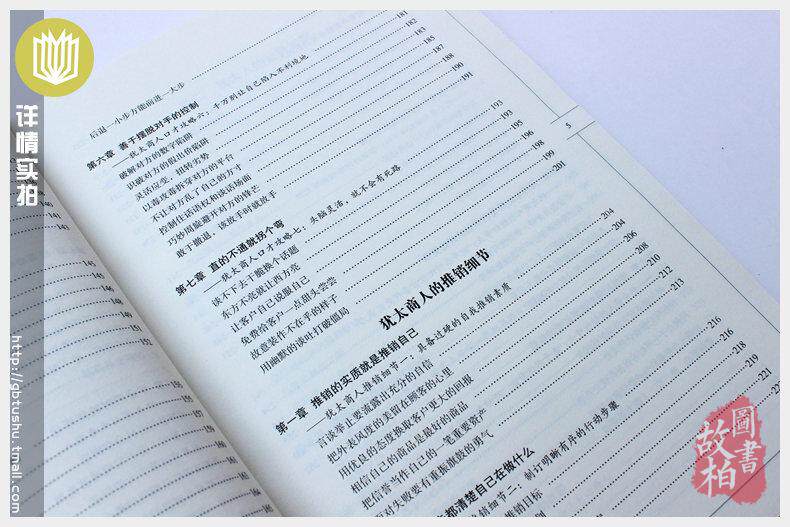 详情实拍
http://gbtushu.tmall.com
后退一小步方能前进一大步
181
182
第六章 善于摆脱对手的控制
183
——犹太商人口才攻略六：千万别让自己陷入不利境地
185
破解对方的数字陷阱
187
识破对方的假出价陷阱
188
灵活应变，扭转劣势
190
以毒攻毒拆穿对方的平台
191
不让对方乱了自己的方寸
控制住话语权和谈话场面
巧妙周旋避开对方的锋芒
193
敢于撤退，该放手时就放手
193
第七章 直的不通就拐个弯
195
——犹太商人口才攻略七：头脑灵活，就不会有死路
196
谈不下去干脆换个话题
198
东方不亮就让西方亮
199
让客户自己说服自己
201
免费给客户一点甜头尝尝
故意装作不在乎的样子
用幽默的谈吐打破僵局
5
犹太商人的推销细节
204
第一章 推销的实质就是推销自己
204
——犹太商人推销细节一：具备过硬的自我推销素质
206
言谈举止要流露出充分的自信
208
把外表风度的美留在顾客的心里
210
用优良的态度换取客户更大的回报
212
相信自己的商品是最好的商品
213
把信誉当作自己的一笔重要资产
面对失败要有重振旗鼓的勇气
216
都清楚自己在做什么
216
细节二：制订明晰有序的行动步骤
218
推销目标
219
221
141
145
145
147
148
150
151
152
故柏
圖書